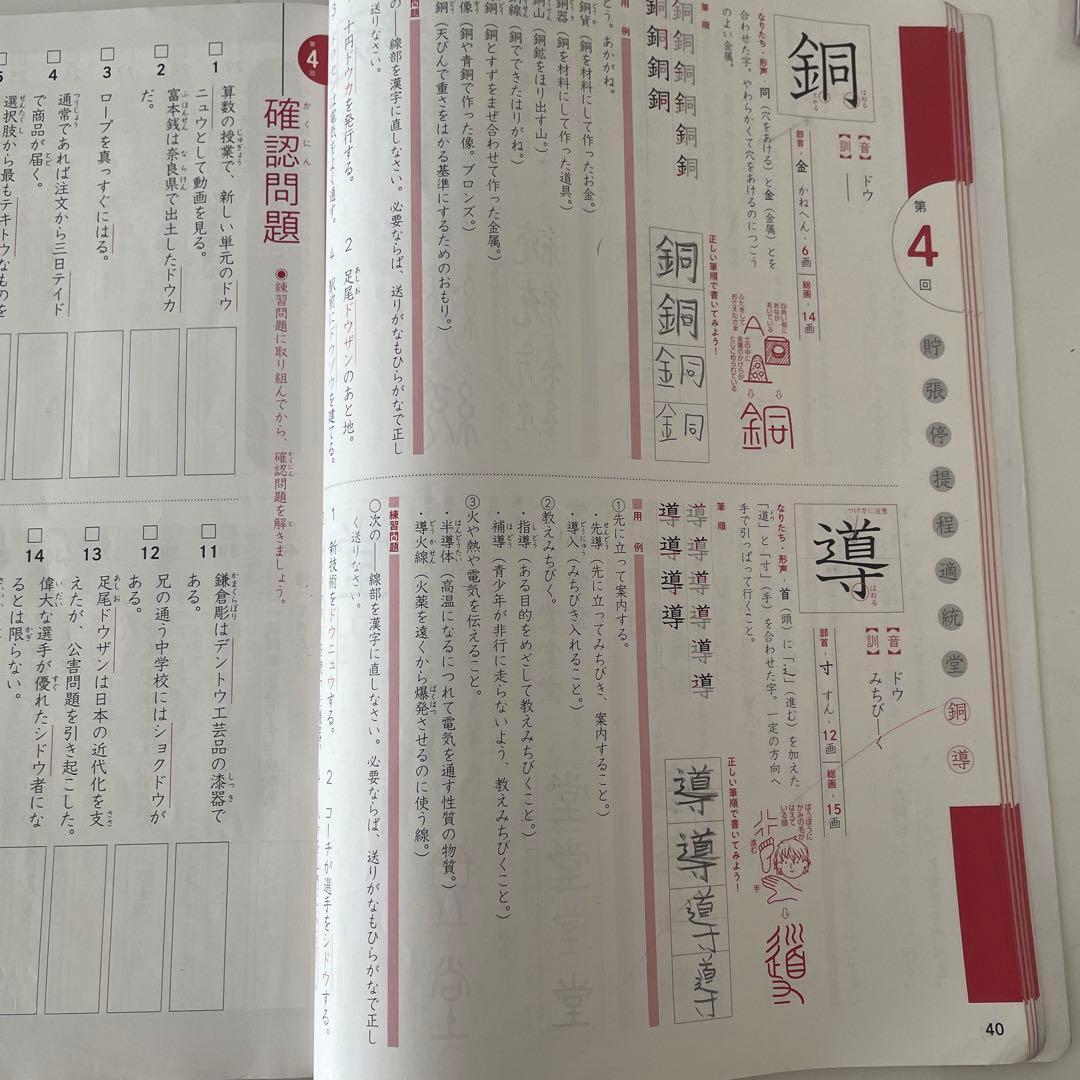 第4回
貯
張
停
提
程
適
統
堂
銅
導
銅
はねる
とめる
【音】ドウ
【訓】―
部首・金 かねへん・6画 総画・14画
なりたち・形声・同(穴をあける)と金(金属)とを
合わせた字。やわらかくて穴をあけるのにつごう
のよい金属。
四角い板に
あながあいている
ふたをして
おさえたさま
土の中に
金属のかけらが
とじこめられている
筆順
正しい筆順で書いてみよう!
銅
銅
銅
銅
用例
どう。あかがね。
銅貨(銅を材料にして作ったお金。)
銅器(銅を材料にして作った道具。)
銅山(銅鉱をほり出す山。)
銅線(銅でできたはりがね。)
青銅(銅とすずをまぜ合わせて作った金属。)
銅像(銅や青銅で作った像。ブロンズ。)
分銅(天びんで重さをはかる基準にするためのおもり。)
の――線部を漢字に直しなさい。必要ならば、送りがなもひらがなで正し
送りなさい。
1 十円ドウカを発行する。
2 足尾ドウザンのあと地。
4 駅前にドウゾウを建てる。
つけ方に注意
導
はねる
【音】ドウ
【訓】みちびーく
部首・寸 すん・12画 総画・15画
なりたち・形声・首(頭)に「辶」(進む)を加えた
「道」と「寸」(手)を合わせた字。一定の方向へ
手で引っぱって行くこと。
ぼうぼうに
かみの毛が
はえて
いる頭
進む
手
筆順
正しい筆順で書いてみよう!
導
導
導
導
用例
①先に立って案内する。
・先導(先に立ってみちびき、案内すること。)
・導入(みちびき入れること。)
②教えみちびく。
・指導(ある目的をめざして教えみちびくこと。)
・補導(青少年が非行に走らないよう、教えみちびくこと。)
③火や熱や電気を伝えること。
・半導体(高温になるにつれて電気を通す性質の物質。)
・導火線(火薬を遠くから爆発させるのに使う線。)
練習問題
〇次の――線部を漢字に直しなさい。必要ならば、送りがなもひらがなで正し
く送りなさい。
1 新技術をドウニュウする。
2 コーチが選手をシドウする。
40
第4回
確認問題
●練習問題に取り組んでから、確認問題を解きましょう。
1 算数の授業で、新しい単元のドウ
ニュウとして動画を見る。
2 富本銭は奈良県で出土したドウカ
だ。
3 ロープを真っすぐにはる。
4 通常であれば注文から三日テイド
で商品が届く。
5 選択肢から最もテキトウなものを
11 鎌倉彫はデントウ工芸品の漆器で
ある。
12 兄の通う中学校にはショクドウが
ある。
13 足尾ドウザンは日本の近代化を支
えたが、公害問題を引き起こした。
14 偉大な選手が優れたシドウ者にな
るとは限らない。